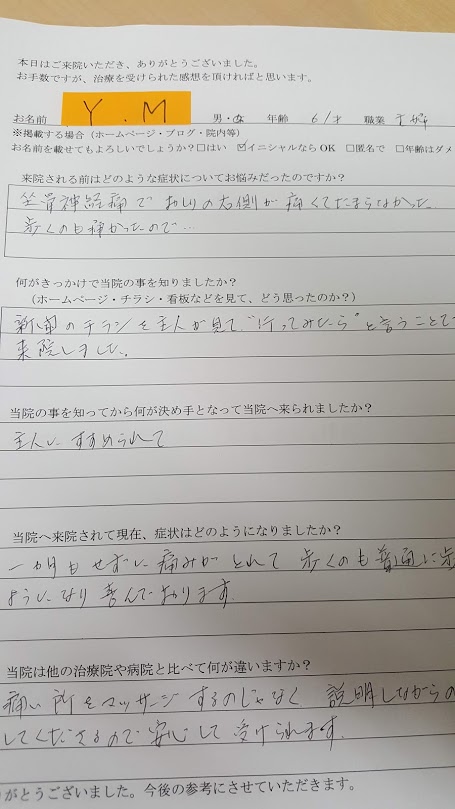 本日はご来院いただき、ありがとうございました。
お手数ですが、治療を受けられた感想を頂ければと思います。
お名前 Y.M 男・女 年齢 61才 職業 主婦
※掲載する場合（ホームページ・ブログ・院内等）
お名前を載せてもよろしいでしょうか？□はい ☑イニシャルならOK □匿名で □年齢はダメ
来院される前はどのような症状についてお悩みだったのですか？
坐骨神経痛でおしりの右側が痛くてたまらなかった
歩くのも痛かったので…
何がきっかけで当院の事を知りましたか？
（ホームページ・チラシ・看板などを見て、どう思ったのか？）
新聞のチラシを主人が見て"行ってみたら"と言うことで
来院しました。
当院の事を知ってから何が決め手となって当院へ来られましたか？
主人にすすめられて
当院へ来院されて現在、症状はどのようになりましたか？
一か月もせずに痛みがとれて歩くのも普通に歩
ようになり喜んでおります。
当院は他の治療院や病院と比べて何が違いますか？
痛い所をマッサージするのじゃなく説明しながらの
してくださるので安心して受けられます。
がとうございました。今後の参考にさせていただきます。